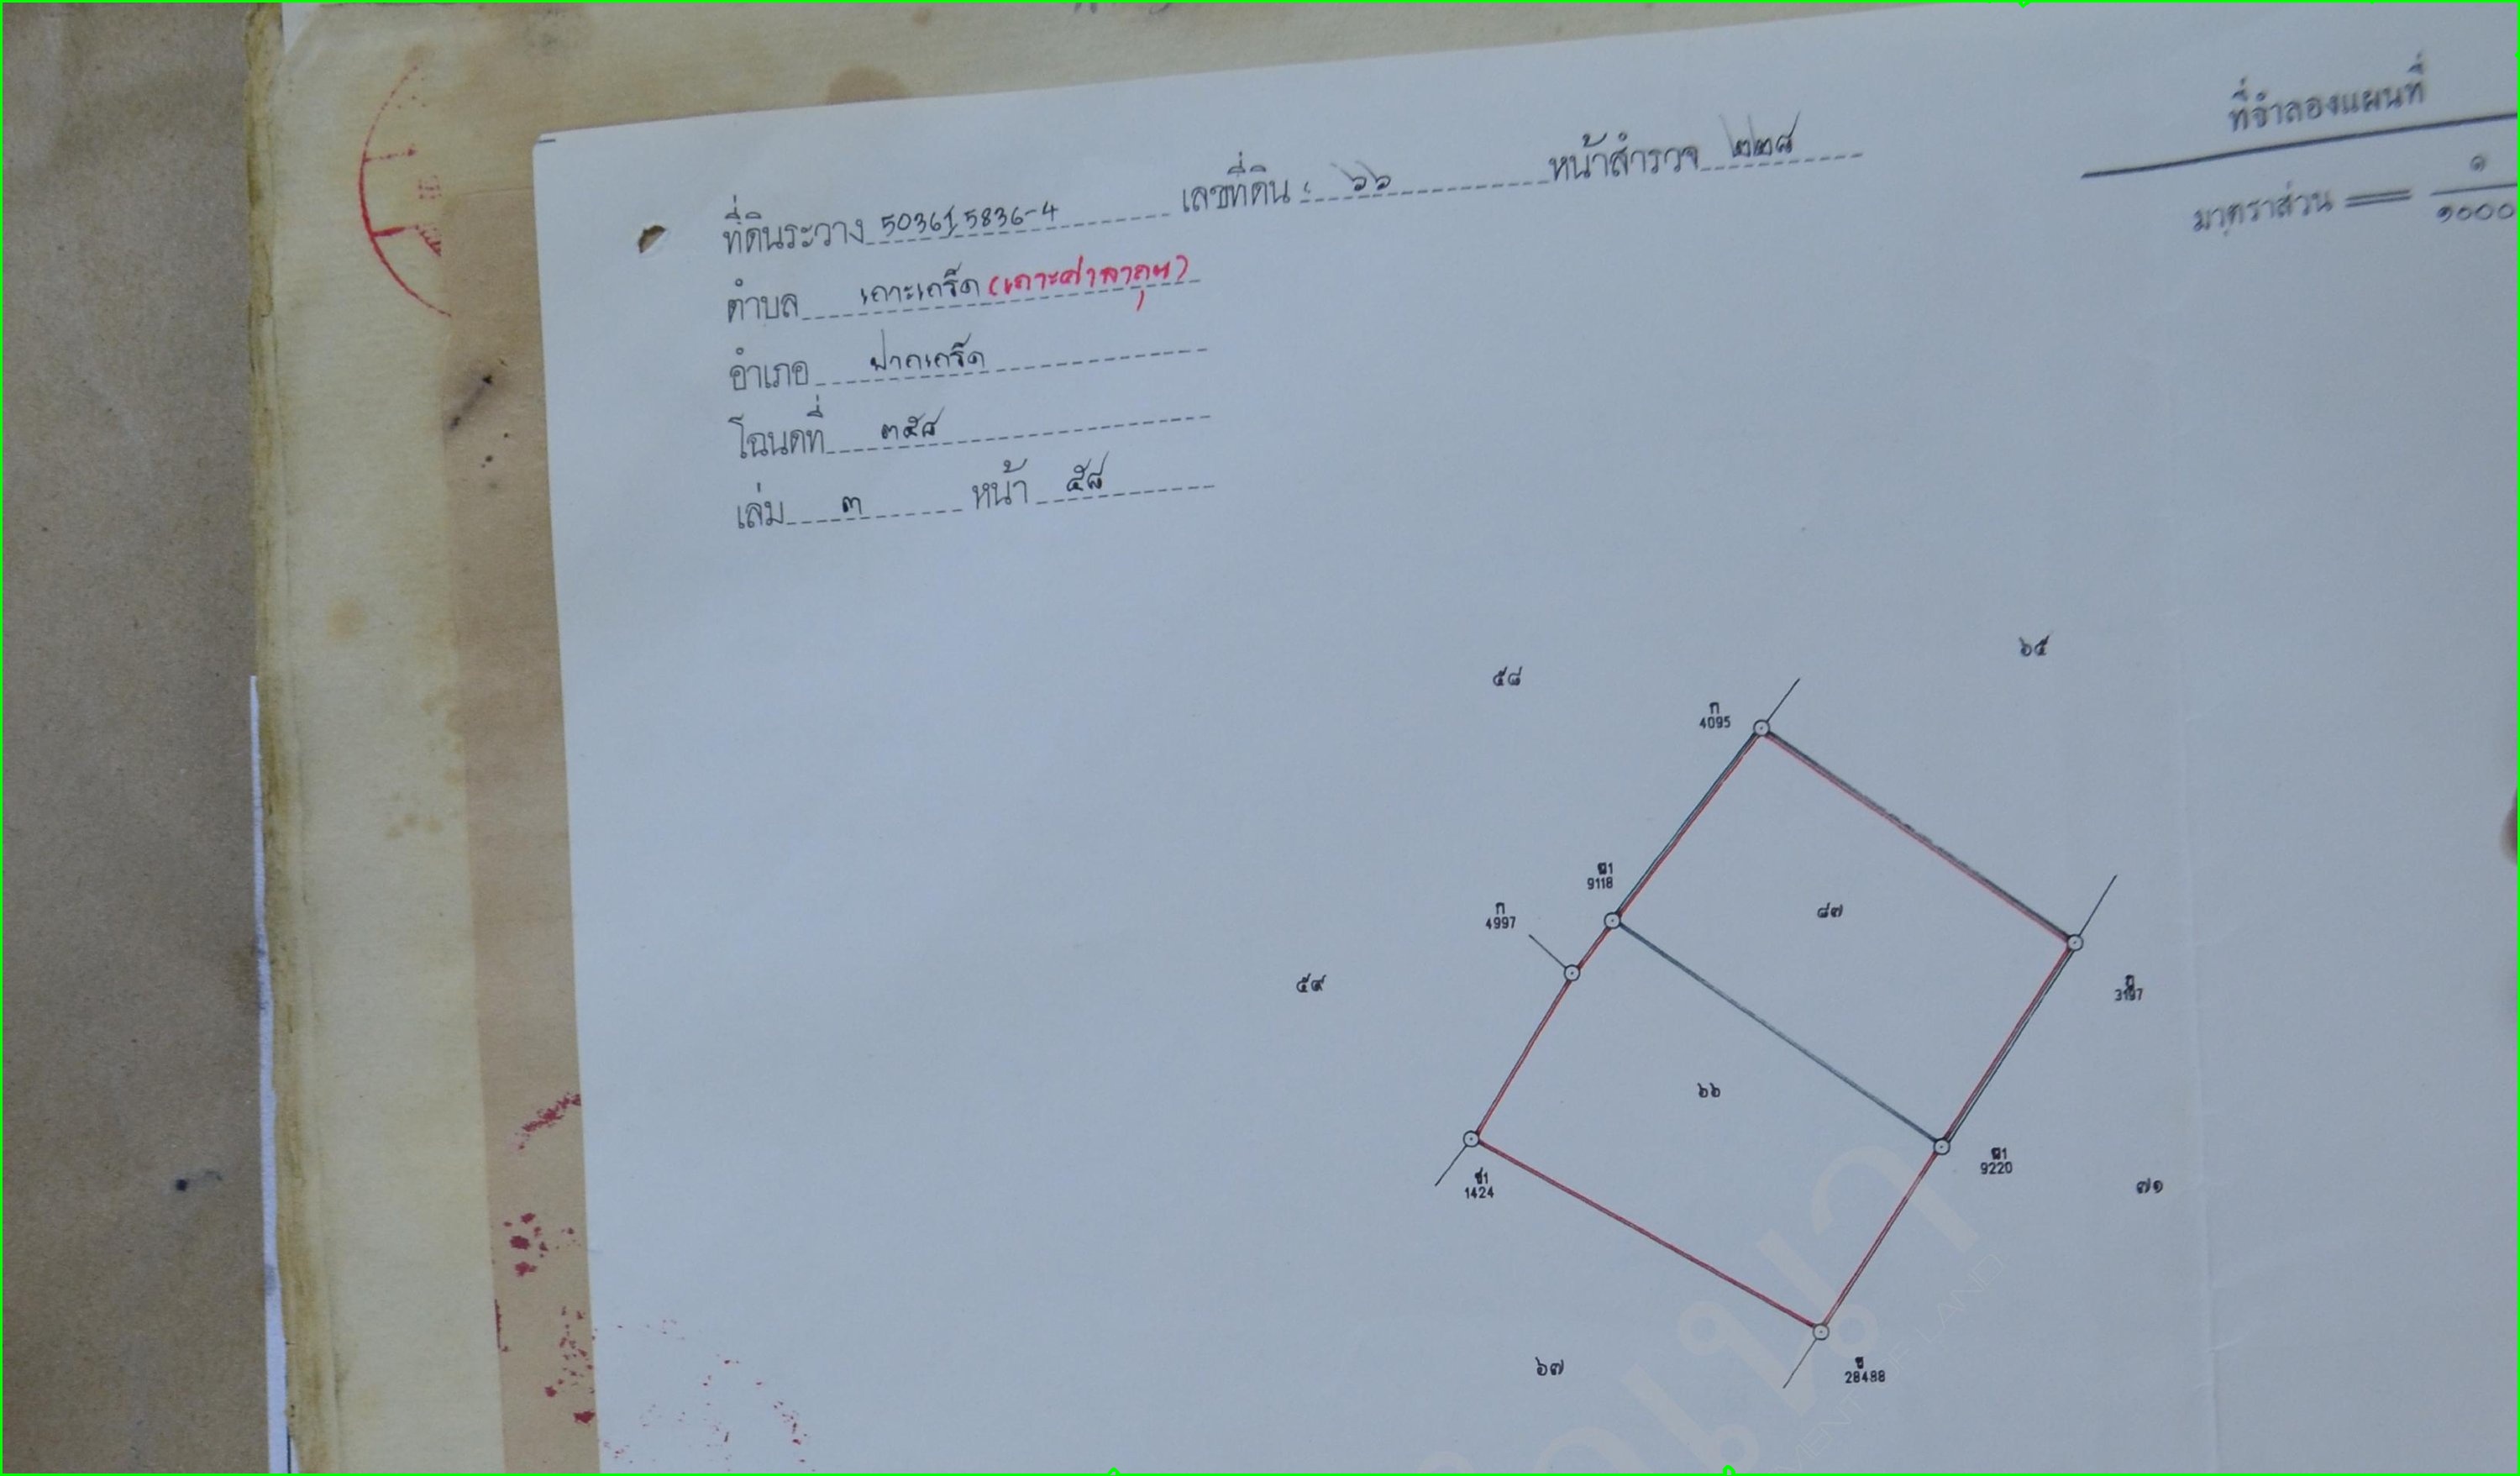 ที่จำลองแผนที่
มาตราส่วน = ๑/๑๐๐๐
ที่ดินระวาง 5036 I 5836-4 เลขที่ดิน ๖๖ หน้าสำรวจ ๒๒๘
ตำบล เกาะเกร็ด (เกาะศาลากุน)
อำเภอ ปากเกร็ด
โฉนดที่ ๓๕๘
เล่ม ๓ หน้า ๕๘
๖๕
๕๘
ก
4095
ผ1
9118
ก
4997
๘๗
๕๙
๖๖
ผ1
9220
ช1
1424
๗๑
๖๗
ช
28488